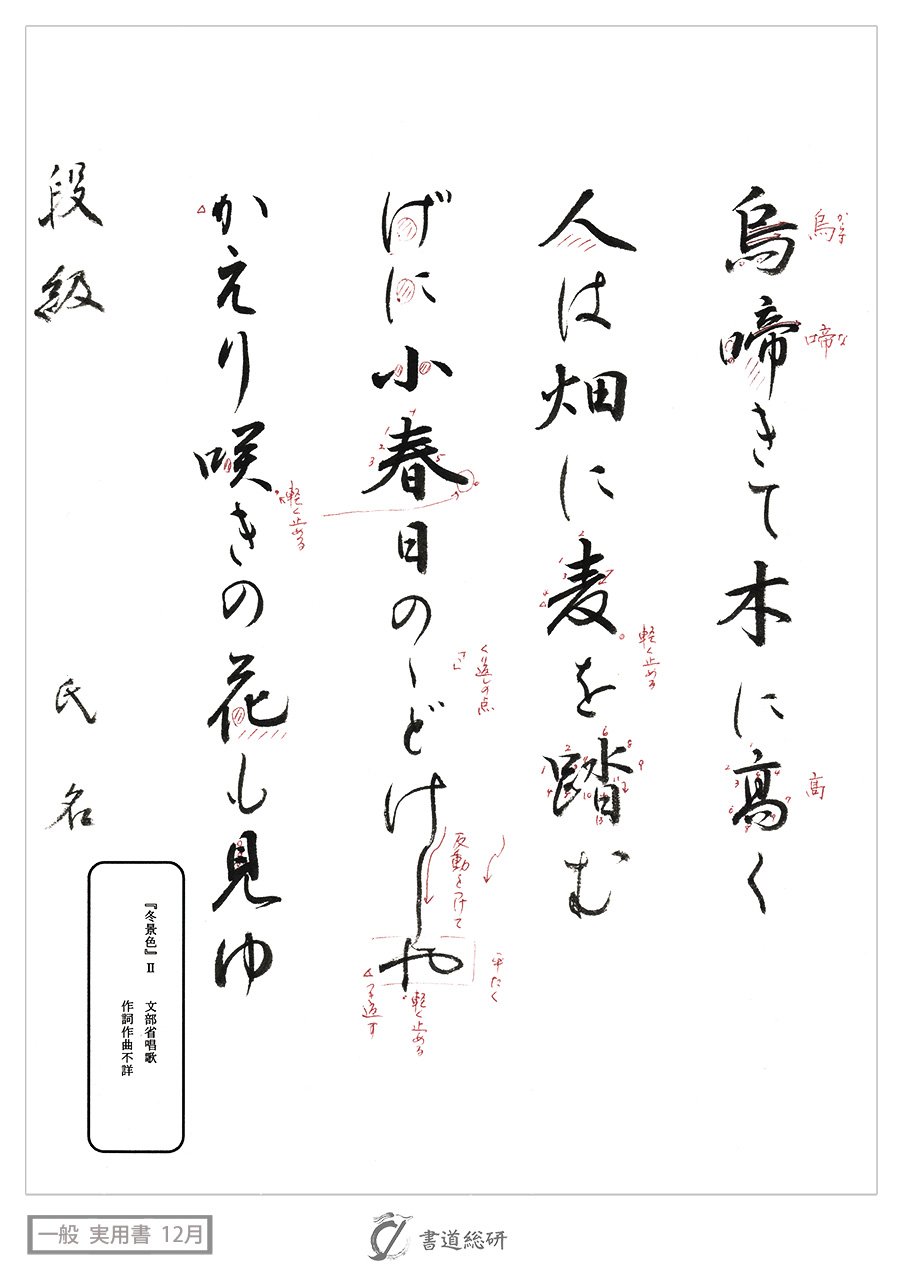 烏啼きて木に高く
烏 からす
啼 な
高
人は畑に麦を踏む
軽く止める
げに小春日のゝどけしや
くり返しの点
「こ」
反動をつけて
平たく
軽く止める
つき返す
かえり咲きの花も見ゆ
軽く止める
段級 氏名
『冬景色』Ⅱ 文部省唱歌
作詞作曲不詳
一般 実用書 12月
書道総研